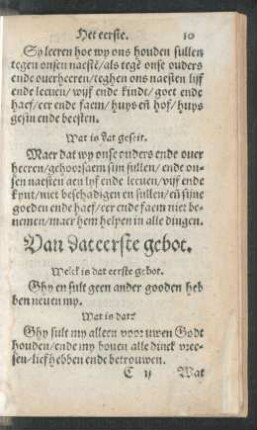 Het eerste. 10
Sy leeren hoe wy ons houden sullen
tegen onsen naestē/als tegē onse ouders
ende ouerheeren/teghen ons naesten lijf
ende leeuen/wijf ende kindt/goet ende
haef/eer ende faem/huys eñ hof/huys
gesin ende beesten.
Wat is dat geseit.
Maer dat wy onse ouders ende ouer
heeren/gehoorsaem sijn sullen/ende on-
sen naesten aen lijf ende leeuen/vijf ende
kynt/niet beschadigen en sullen/eñ sijne
goeden ende haef/eer ende faem niet be-
nemen/maer hem helpen in alle dingen.
Van dat eerste gebot.
Welck is dat eerste gebot.
Ghy en sult geen ander gooden heb
ben neuen my.
Wat is dat?
Ghy sult my alleen voor uwen Godt
houden/ende my bouen alle dinck vree-
sen/lief hebben ende betrouwen.
C ij Wat